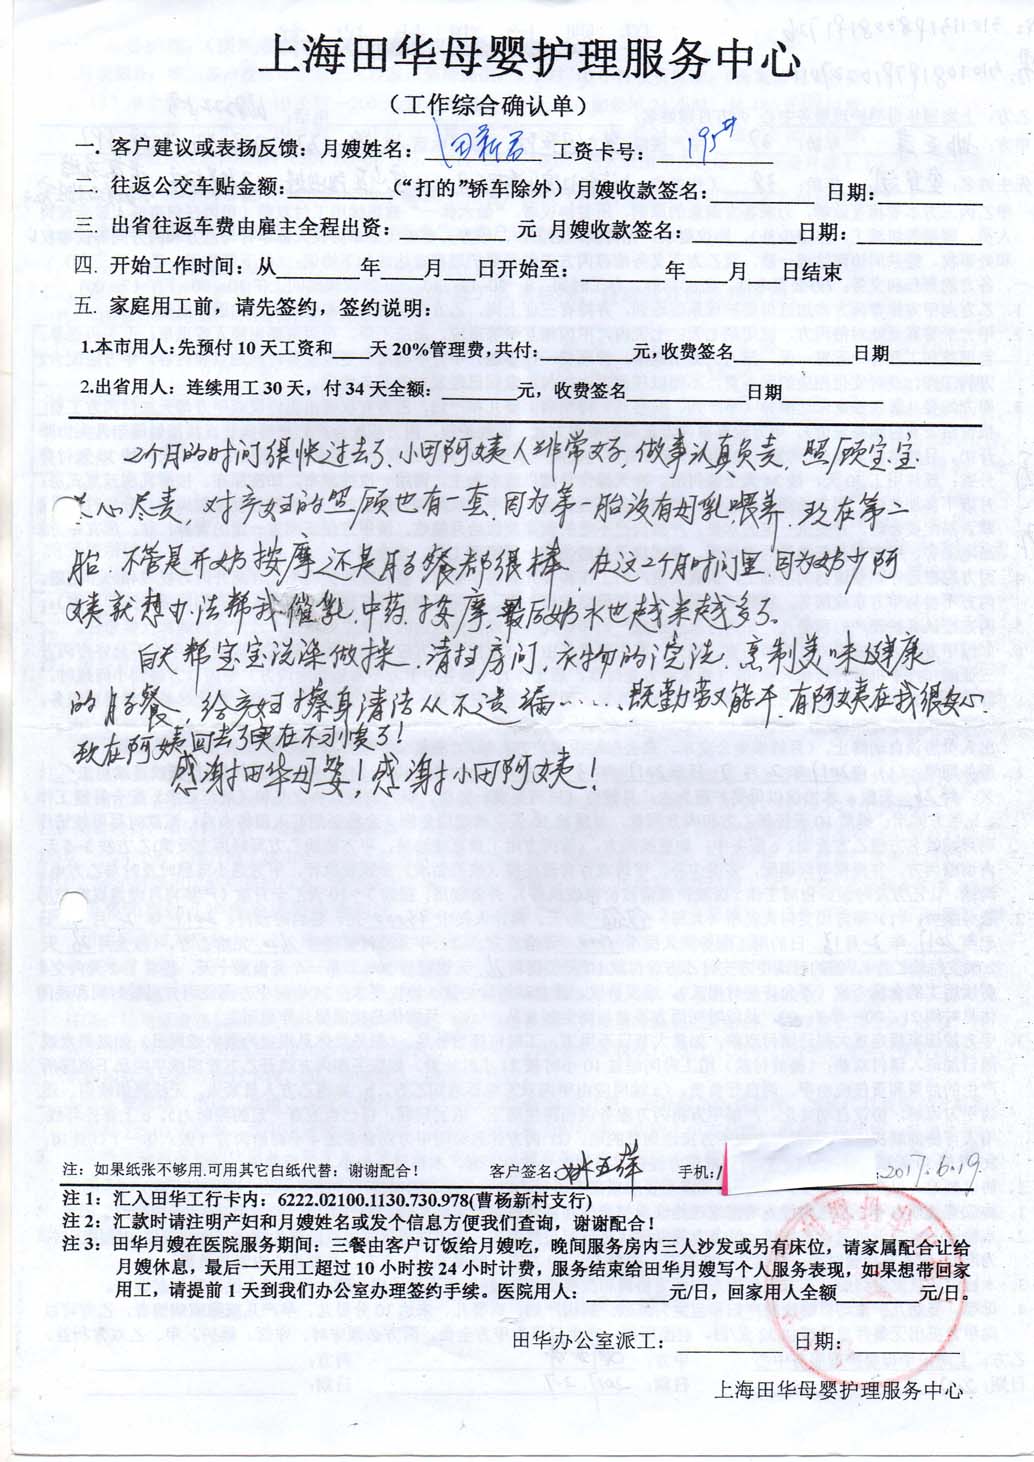 上海田华母婴护理服务中心
（工作综合确认单）
一. 客户建议或表扬反馈：月嫂姓名： 田新 工资卡号： 195#
二. 往返公交车贴金额： （“打的”轿车除外）月嫂收款签名： 日期：
三. 出省往返车费由雇主全程出资： 元 月嫂收款签名： 日期：
四. 开始工作时间：从 年 月 日开始至： 年 月 日结束
五. 家庭用工前，请先签约，签约说明：
1.本市用人：先预付10天工资和 天20%管理费，共付： 元，收费签名 日期
2.出省用人：连续用工30天，付34天全额： 元，收费签名 日期
2个月的时间很快过去了、小田阿姨人非常好、做事认真负责、照顾宝宝
尽责、对产妇的照顾也有一套、因为第一胎没有母乳喂养、现在第二
胎、不管是开奶按摩、还是月子餐都很棒、在这2个月时间里、因为奶少阿
姨就想办法帮我催乳、中药、按摩、最后奶水也越来越多了。
白天帮宝宝洗澡做操、清扫房间、衣物的洗、烹制美味健康
的月子餐、给产妇擦身清洁从不遗漏……、既勤劳又能干、有阿姨在我很安心、
现在阿姨回去了实在不习惯了！
感谢田华母婴，感谢小田阿姨！
注：如果纸张不够用.可用其它白纸代替：谢谢配合！ 客户签名： 手机:1 2017.6.19
注1：汇入田华工行卡内：6222.02100.1130.730.978(曹杨新村支行)
注2：汇款时请注明产妇和月嫂姓名或发个信息方便我们查询，谢谢配合！
注3：田华月嫂在医院服务期间：三餐由客户订饭给月嫂吃，晚间服务房内三人沙发或另有床位，请家属配合让给
月嫂休息，最后一天用工超过10小时按24小时计费，服务结束给田华月嫂写个人服务表现，如果想带回家
用工，请提前1天到我们办公室办理签约手续。医院用人： 元/日，回家用人全额 元/日。
田华办公室派工： 日期：
上海田华母婴护理服务中心